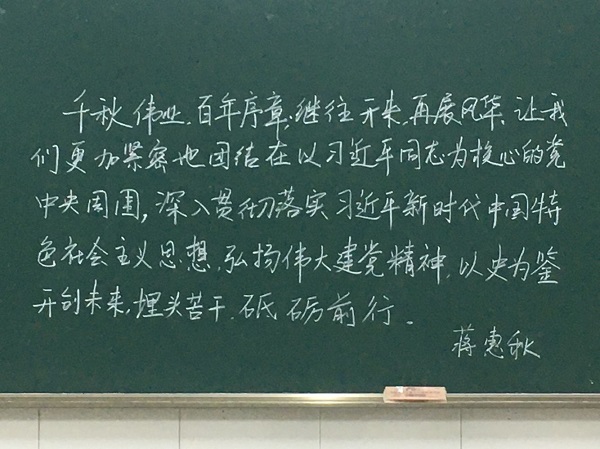 千秋伟业,百年序章,继往开来,再展风华,让我
们更加紧密地团结在以习近平同志为核心的党
中央周围,深入贯彻落实习近平新时代中国特
色社会主义思想,弘扬伟大建党精神,以史为鉴
开创未来,埋头苦干,砥砺前行。
蒋惠秋